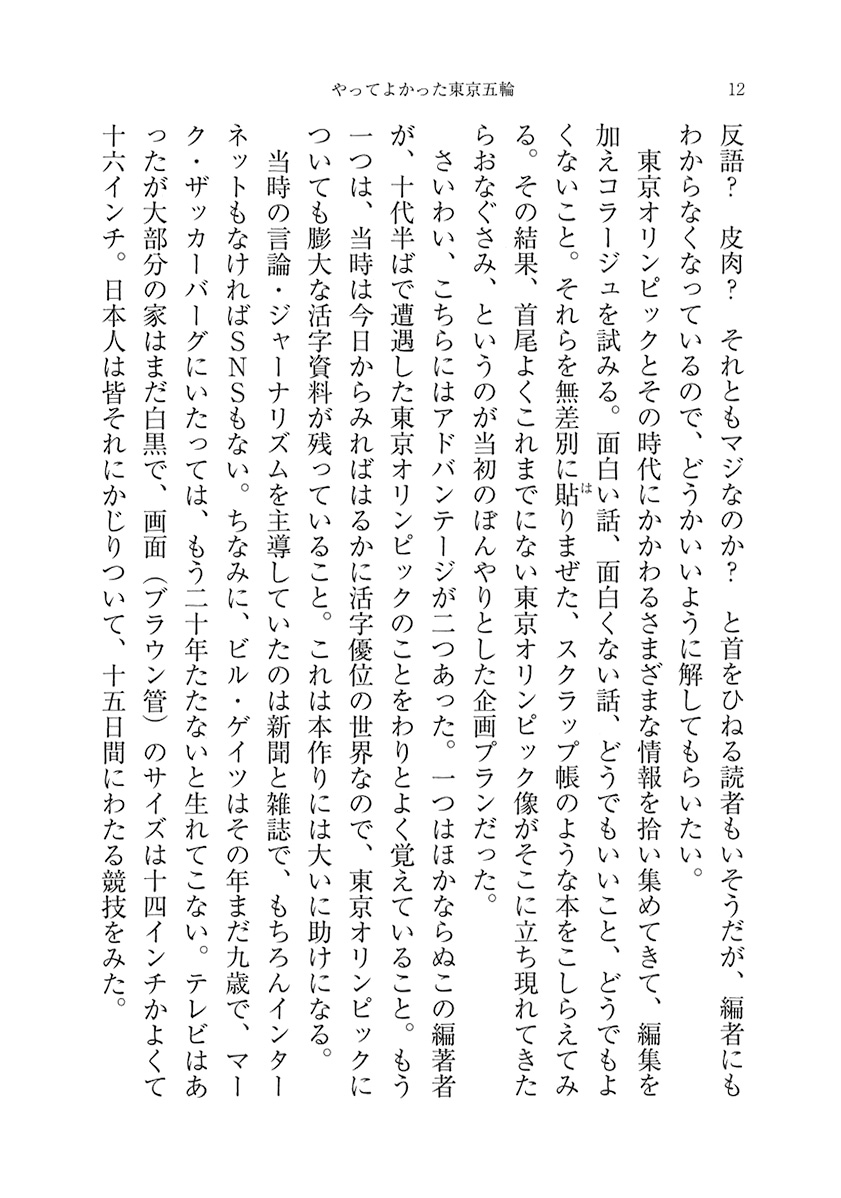 やってよかった東京五輪
12
反語？　皮肉？　それともマジなのか？　と首をひねる読者もいそうだが、編者にも
わからなくなっているので、どうかいいように解してもらいたい。
　東京オリンピックとその時代にかかわるさまざまな情報を拾い集めてきて、編集を
加えコラージュを試みる。面白い話、面白くない話、どうでもいいこと、どうでもよ
くないこと。それらを無差別に貼りまぜた、スクラップ帳のような本をこしらえてみ
は
る。その結果、首尾よくこれまでにない東京オリンピック像がそこに立ち現れてきた
らおなぐさみ、というのが当初のぼんやりとした企画プランだった。
　さいわい、こちらにはアドバンテージが二つあった。一つはほかならぬこの編著者
が、十代半ばで遭遇した東京オリンピックのことをわりとよく覚えていること。もう
一つは、当時は今日からみればはるかに活字優位の世界なので、東京オリンピックに
ついても膨大な活字資料が残っていること。これは本作りには大いに助けになる。
　当時の言論・ジャーナリズムを主導していたのは新聞と雑誌で、もちろんインター
ネットもなければＳＮＳもない。ちなみに、ビル・ゲイツはその年まだ九歳で、マー
ク・ザッカーバーグにいたっては、もう二十年たたないと生れてこない。テレビはあ
ったが大部分の家はまだ白黒で、画面（ブラウン管）のサイズは十四インチかよくて
十六インチ。日本人は皆それにかじりついて、十五日間にわたる競技をみた。